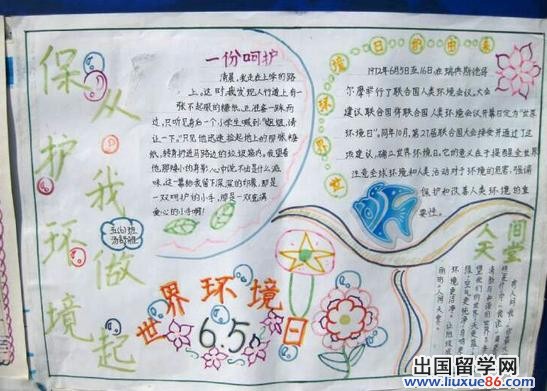 保护环境
从我做起
五(6)班
一份呵护
清晨,我走在上学的路
上,这时,我发现人行道上有一
张不起眼的糖纸,正准备一踩而
过,只听见身后一个小学生喊到:“姐姐,请
让一下。”只见他迅速捡起地上的那张糖
纸,转身扔进马路边的垃圾箱内,我望着
他,那矮小的身影,心中说不出是什么滋
味,这一幕给我留下深深的印象,那是
一双呵护的小手,那是一双充满
爱心的小手啊!
世界环境日的由来
1972年6月5日至16日,在瑞典斯德哥
尔摩举行了联合国人类环境会议,大会
建议联合国将联合国人类环境会议开幕日定为“世界
环境日”,同年10月,第27届联合国大会接受并通过了这
项建议,确立世界环境日,它的意义在于提醒全世界
注意全球环境和人类活动对于环境的危害,强调
保护和改善人类环境的重
要性。
人间天堂
世界环境日
6.5
出国留学网
www.liuxue86.com